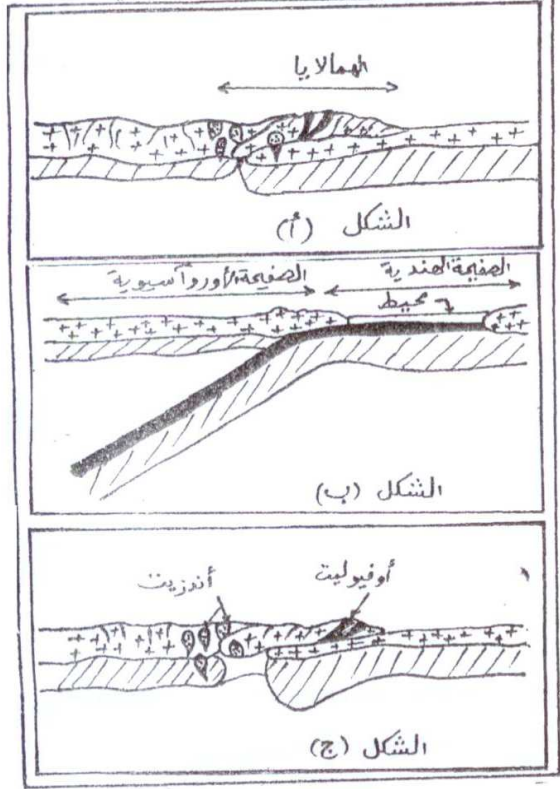 الهمالايا
الشكل (أ)
الصفيحة الهندية
الصفيحة الأوروآسيوية
محيط
الشكل (ب)
أوفيوليت
أندزيت
الشكل (ج)